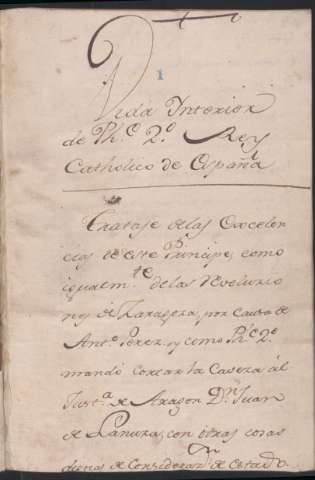 1
Vida Interior
de Phe. 2.º Rey
Catholico de España
Tratase de las Excelen
cias de este Principe, como
igualmte. de las Revolucio
nes de Zaragoza, por causa de
Anto. Perez, y como Phe. 2.º
mando cortar la Caveza al
Justa. de Aragon Dn. Juan
de Lanuza, con otras cosas
dignas de Considerar de Estado.